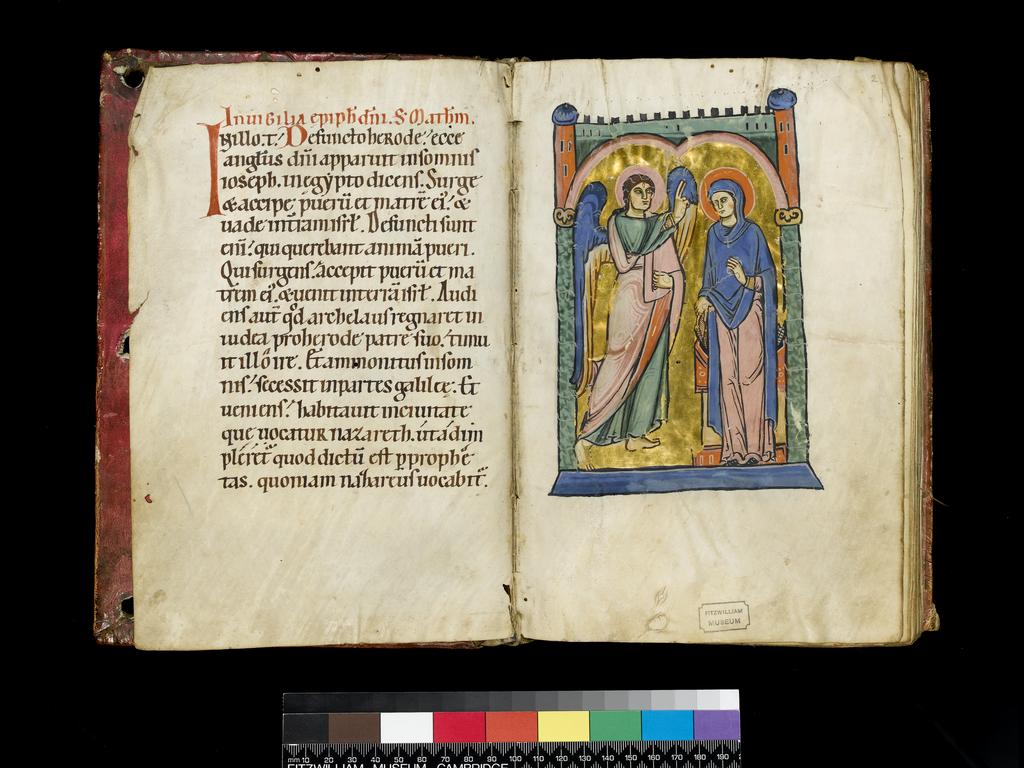 In uigilia epiph dñi. S. Mathm.
In illo. t. Defuncto herode. ecce
angl̃us dñi apparuit in somnis
ioseph. in egypto dicens. Surge
& accipe puerũ et matrẽ ei'. &
uade in t̃iam isrl̃. Defuncti sunt
eni͂. qui querebant animã pueri.
Qui surgens. accepit puerũ et ma
trem ei'. & uenit in teriã isrl̃. Audi
ens aut̃ qd̃ archelaus regnaret in
iudea pro herode patre suo. timu
it illo ire. Et ammonitus in som
nis. secessit in partes galileę. Et
ueniens. habitauit in ciuitate
que uocatur nazareth. ut adim
pleret̃ quod dictũ est p prophe
tas. quoniam nazareus uocabit̃.
2
FITZWILLIAM
MUSEUM
mm 10 20 30 40 50 60 70 80 90 100 110 120 130 140 150 160 170 180 190
FITZWILLIAM MUSEUM CAMBRIDGE